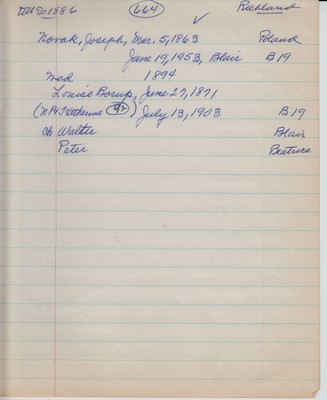 1886 (664) Richland
Novak, Joseph, Mar. 5, 1863 Poland
June 19, 1953, Blair B19
Med 1894
Louise Borup, June 27, 1871
Katherine 92) July 13, 1903 B19
ch Walter Blair
Peter Beatrice